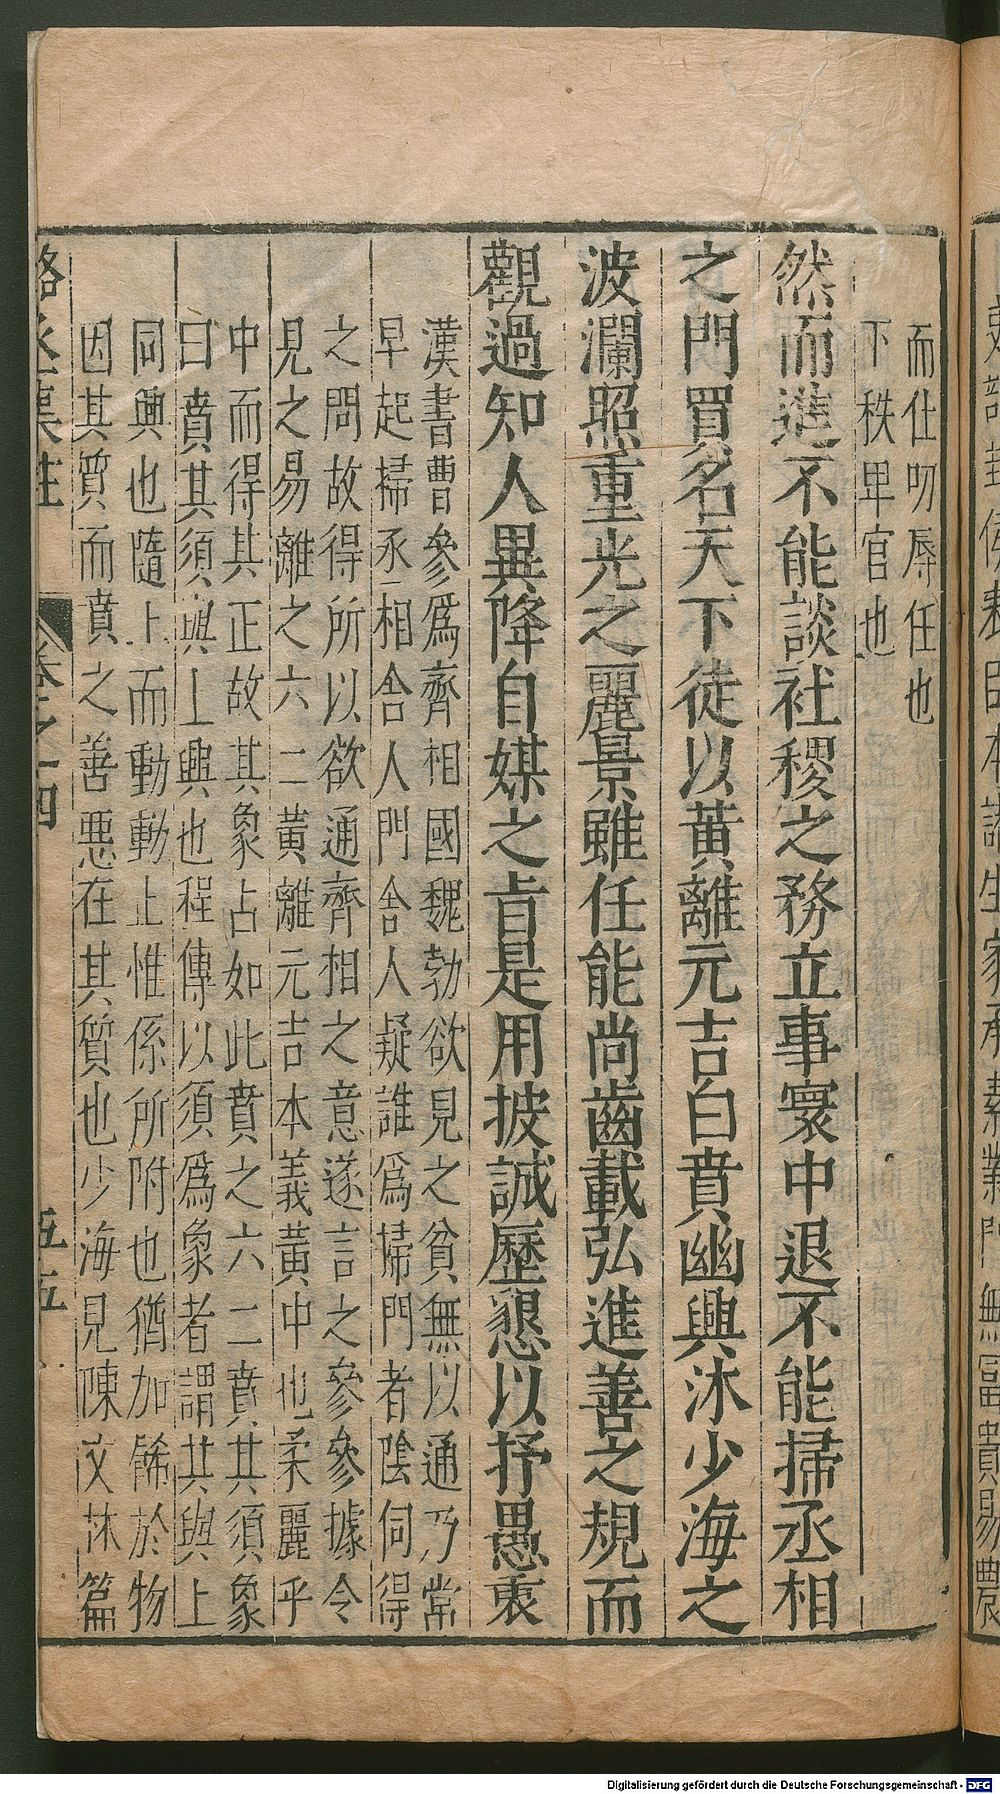 而仕叨辱任也
下秩卑官也
然而進不能談社稷之務立事寰中退不能掃丞相
之門買名天下徒以黃離元吉白賁幽興沐少海之
波瀾照重光之麗景雖任能尚齒載弘進善之規而
觀過知人異降自媒之㫖是用披誠歷懇以抒愚衷
漢書曹參爲齊相國魏勃欲見之貧無以通乃常
早起掃丞相舍人門舍人疑誰爲掃門者陰伺得
之問故得所以欲通齊相之意遂言之參參據令
見之易離之六二黃離元吉本義黃中也柔麗乎
中而得其正故其象占如此賁之六二賁其須象
曰賁其須與上興也程傳以須爲象者謂其與上
同興也隨上而動動止惟係所附也猶加飾於物
因其質而賁之善惡在其質也少海見陳文林篇
駱丞集註
卷之四
五五
Digitalisierung gefördert durch die Deutsche Forschungsgemeinschaft - DFG